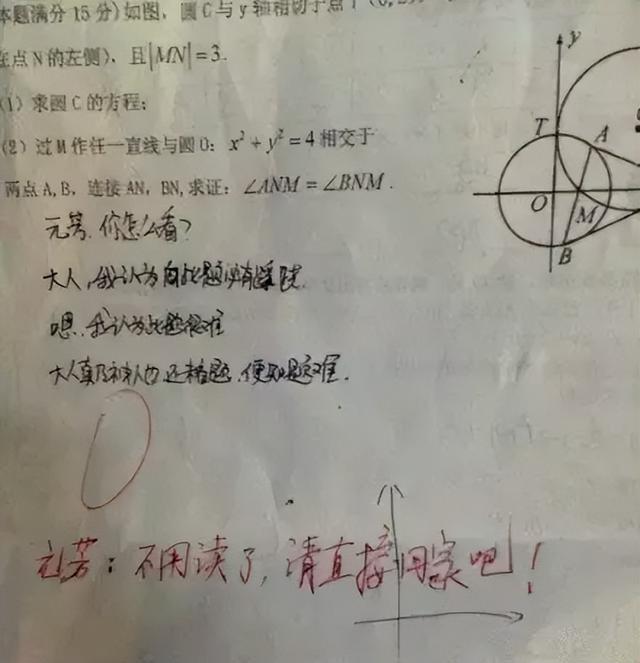 本题满分15分)如图,圆C与y轴相切于点T
在点N的左侧),且|MN|=3.
(1)求圆C的方程;
(2)过M作任一直线与圆O:x²+y²=4相交于
两点A,B,连接AN,BN,求证:∠ANM=∠BNM.
y
T
A
O
M
B
元芳,你怎么看?
大人,我认为此题必有蹊跷.
嗯,我认为此题很难
大人真乃神人也,还 题,便知题难.
元芳:不用读了,请直接回家吧!